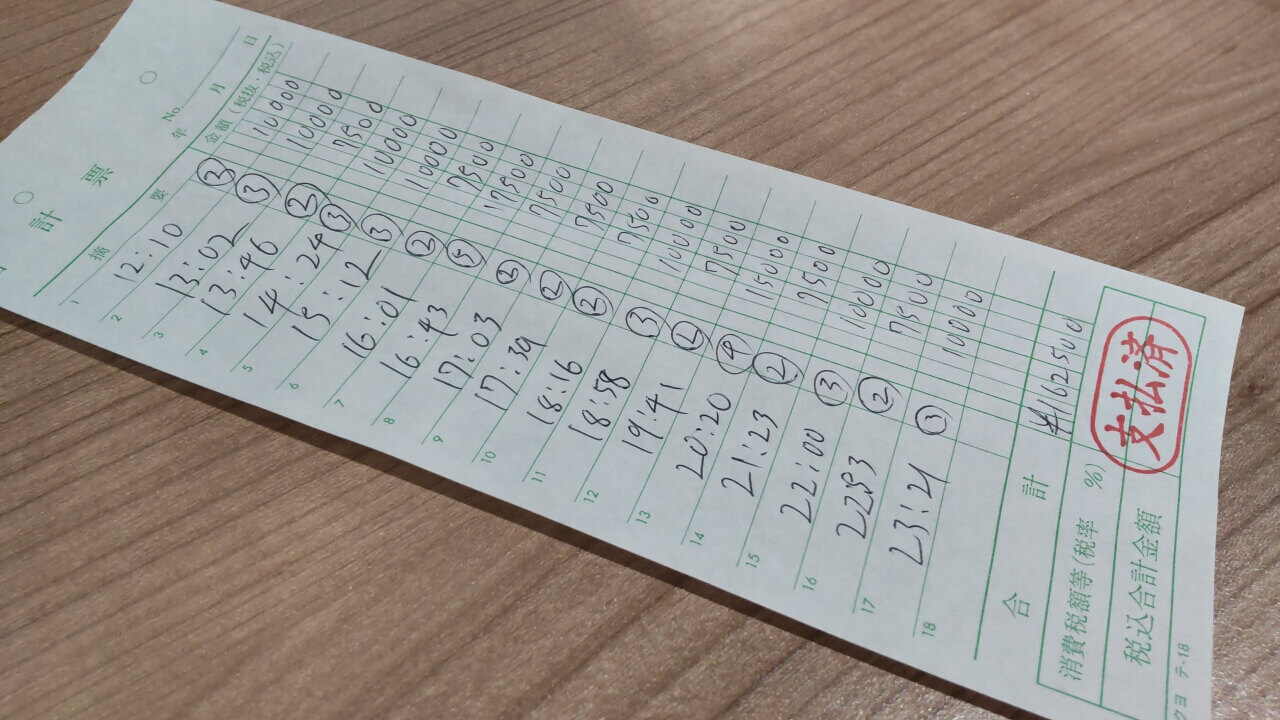 計 票
No.
年 月 日
摘 要 金額 (税抜・税込)
1 12:10 ③ 10000
2 13:02 ③ 10000
3 13:46 ② 7500
4 14:24 ③ 10000
5 15:12 ③ 10000
6 16:01 ② 7500
7 16:43 ⑤ 17500
8 17:03 ② 7500
9 17:39 ② 7500
10 18:16 ② 7500
11 18:58 ③ 10000
12 19:41 ② 7500
13 20:20 ④ 15000
14 21:23 ② 7500
15 22:00 ③ 10000
16 2253 ② 7500
17 23:21 ③ 10000
18
合 計 ¥162500
消費税額等 (税率 %)
税込合計金額
支払済
クヨ テ-18